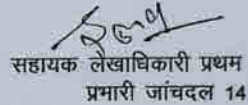 सहायक लेखाधिकारी प्रथम
प्रभारी जांचदल 14